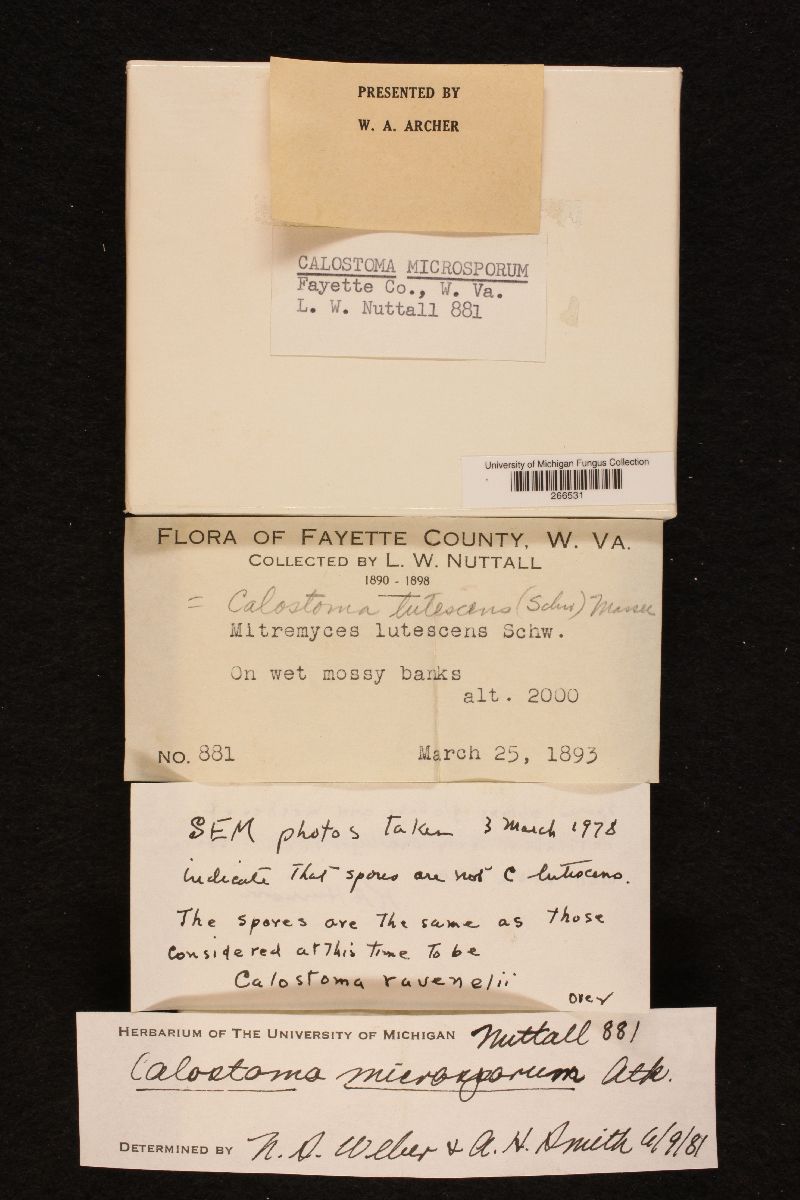 PRESENTED BY
W. A. ARCHER
CALOSTOMA MICROSPORUM
Fayette Co., W. Va.
L. W. Nuttall 881
University of Michigan Fungus Collection
266531
FLORA OF FAYETTE COUNTY, W. VA.
COLLECTED BY L. W. NUTTALL
1890 - 1898
= Calostoma lutescens (Schw) Massee
Mitremyces lutescens Schw.
On wet mossy banks
alt. 2000
NO. 881 March 25, 1893
SEM photos taken 3 March 1978
indicate that spores are not C lutescens.
The spores are the same as those
considered at this time to be
Calostoma ravenelii
over
HERBARIUM OF THE UNIVERSITY OF MICHIGAN Nuttall 881
Calostoma microsporum Atk.
DETERMINED BY N. S. Weber & A. H. Smith 6/9/81